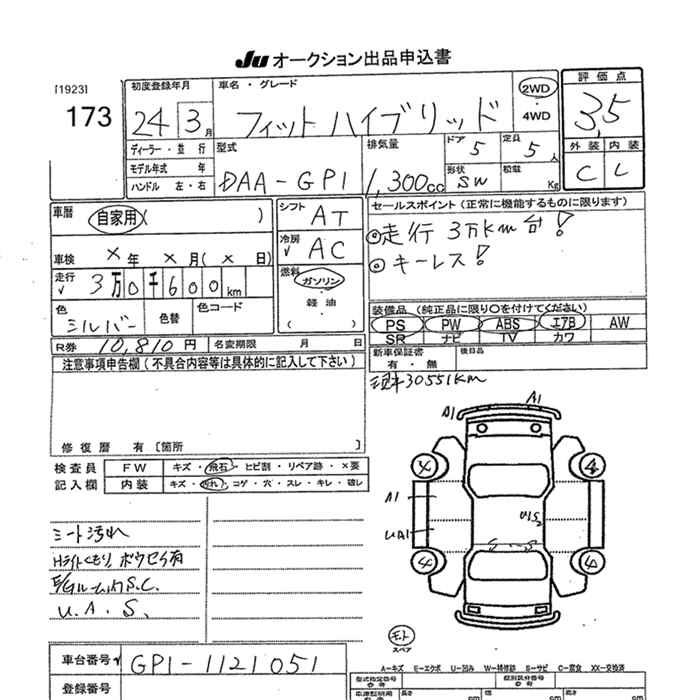 Ju オークション出品申込書
[1923]
173
初度登録年月
24 3月
車名・グレード
フィット ハイブリッド
2WD
・
4WD
評価点
3.5
外装 内装
C C
ディーラー・並行
モデル年式 年
ハンドル 左・右
型式
DAA-GP1
排気量
1,300cc
ドア 5
定員 5人
形状 SW
積載 Kg
車歴 自家用( )
シフト AT
セールスポイント(正常に機能するものに限ります)
◎走行 3万km台!
◎キーレス!
車検 × 年 × 月( × 日)
冷房 AC
走行 3万0千600km
燃料 ガソリン
・
軽油
( )
色 シルバー
色替
色コード
装備品(純正品に限り○を付けてください)
PS PW ABS エアB AW
SR ナビ TV カワ
R券 10,810円
名変期限 月 日
新車保証書
有・無
後日品
注意事項申告欄(不具合内容等は具体的に記入して下さい)
現車30551km
修復歴 有 [箇所 ]
検査員
記入欄
FW キズ・飛石・ヒビ割・リペア跡・×要
内装 キズ・汚れ・コゲ・穴・スレ・キレ・破レ
シート汚れ
Hライトくもり、ボウセイ有
E/Gルーム内S.C.
U.A.S.
A1
A1
A1
UA1
U1S2
S・S
4
4
4
4
モト
スペア
車台番号 GP1-1121051
登録番号
A-キズ M-エクボ U-凹み W-補修跡 S-サビ C-腐食 XX-交換済
型式指定番号
類別区分番号
長さ cm 幅 cm 高さ cm